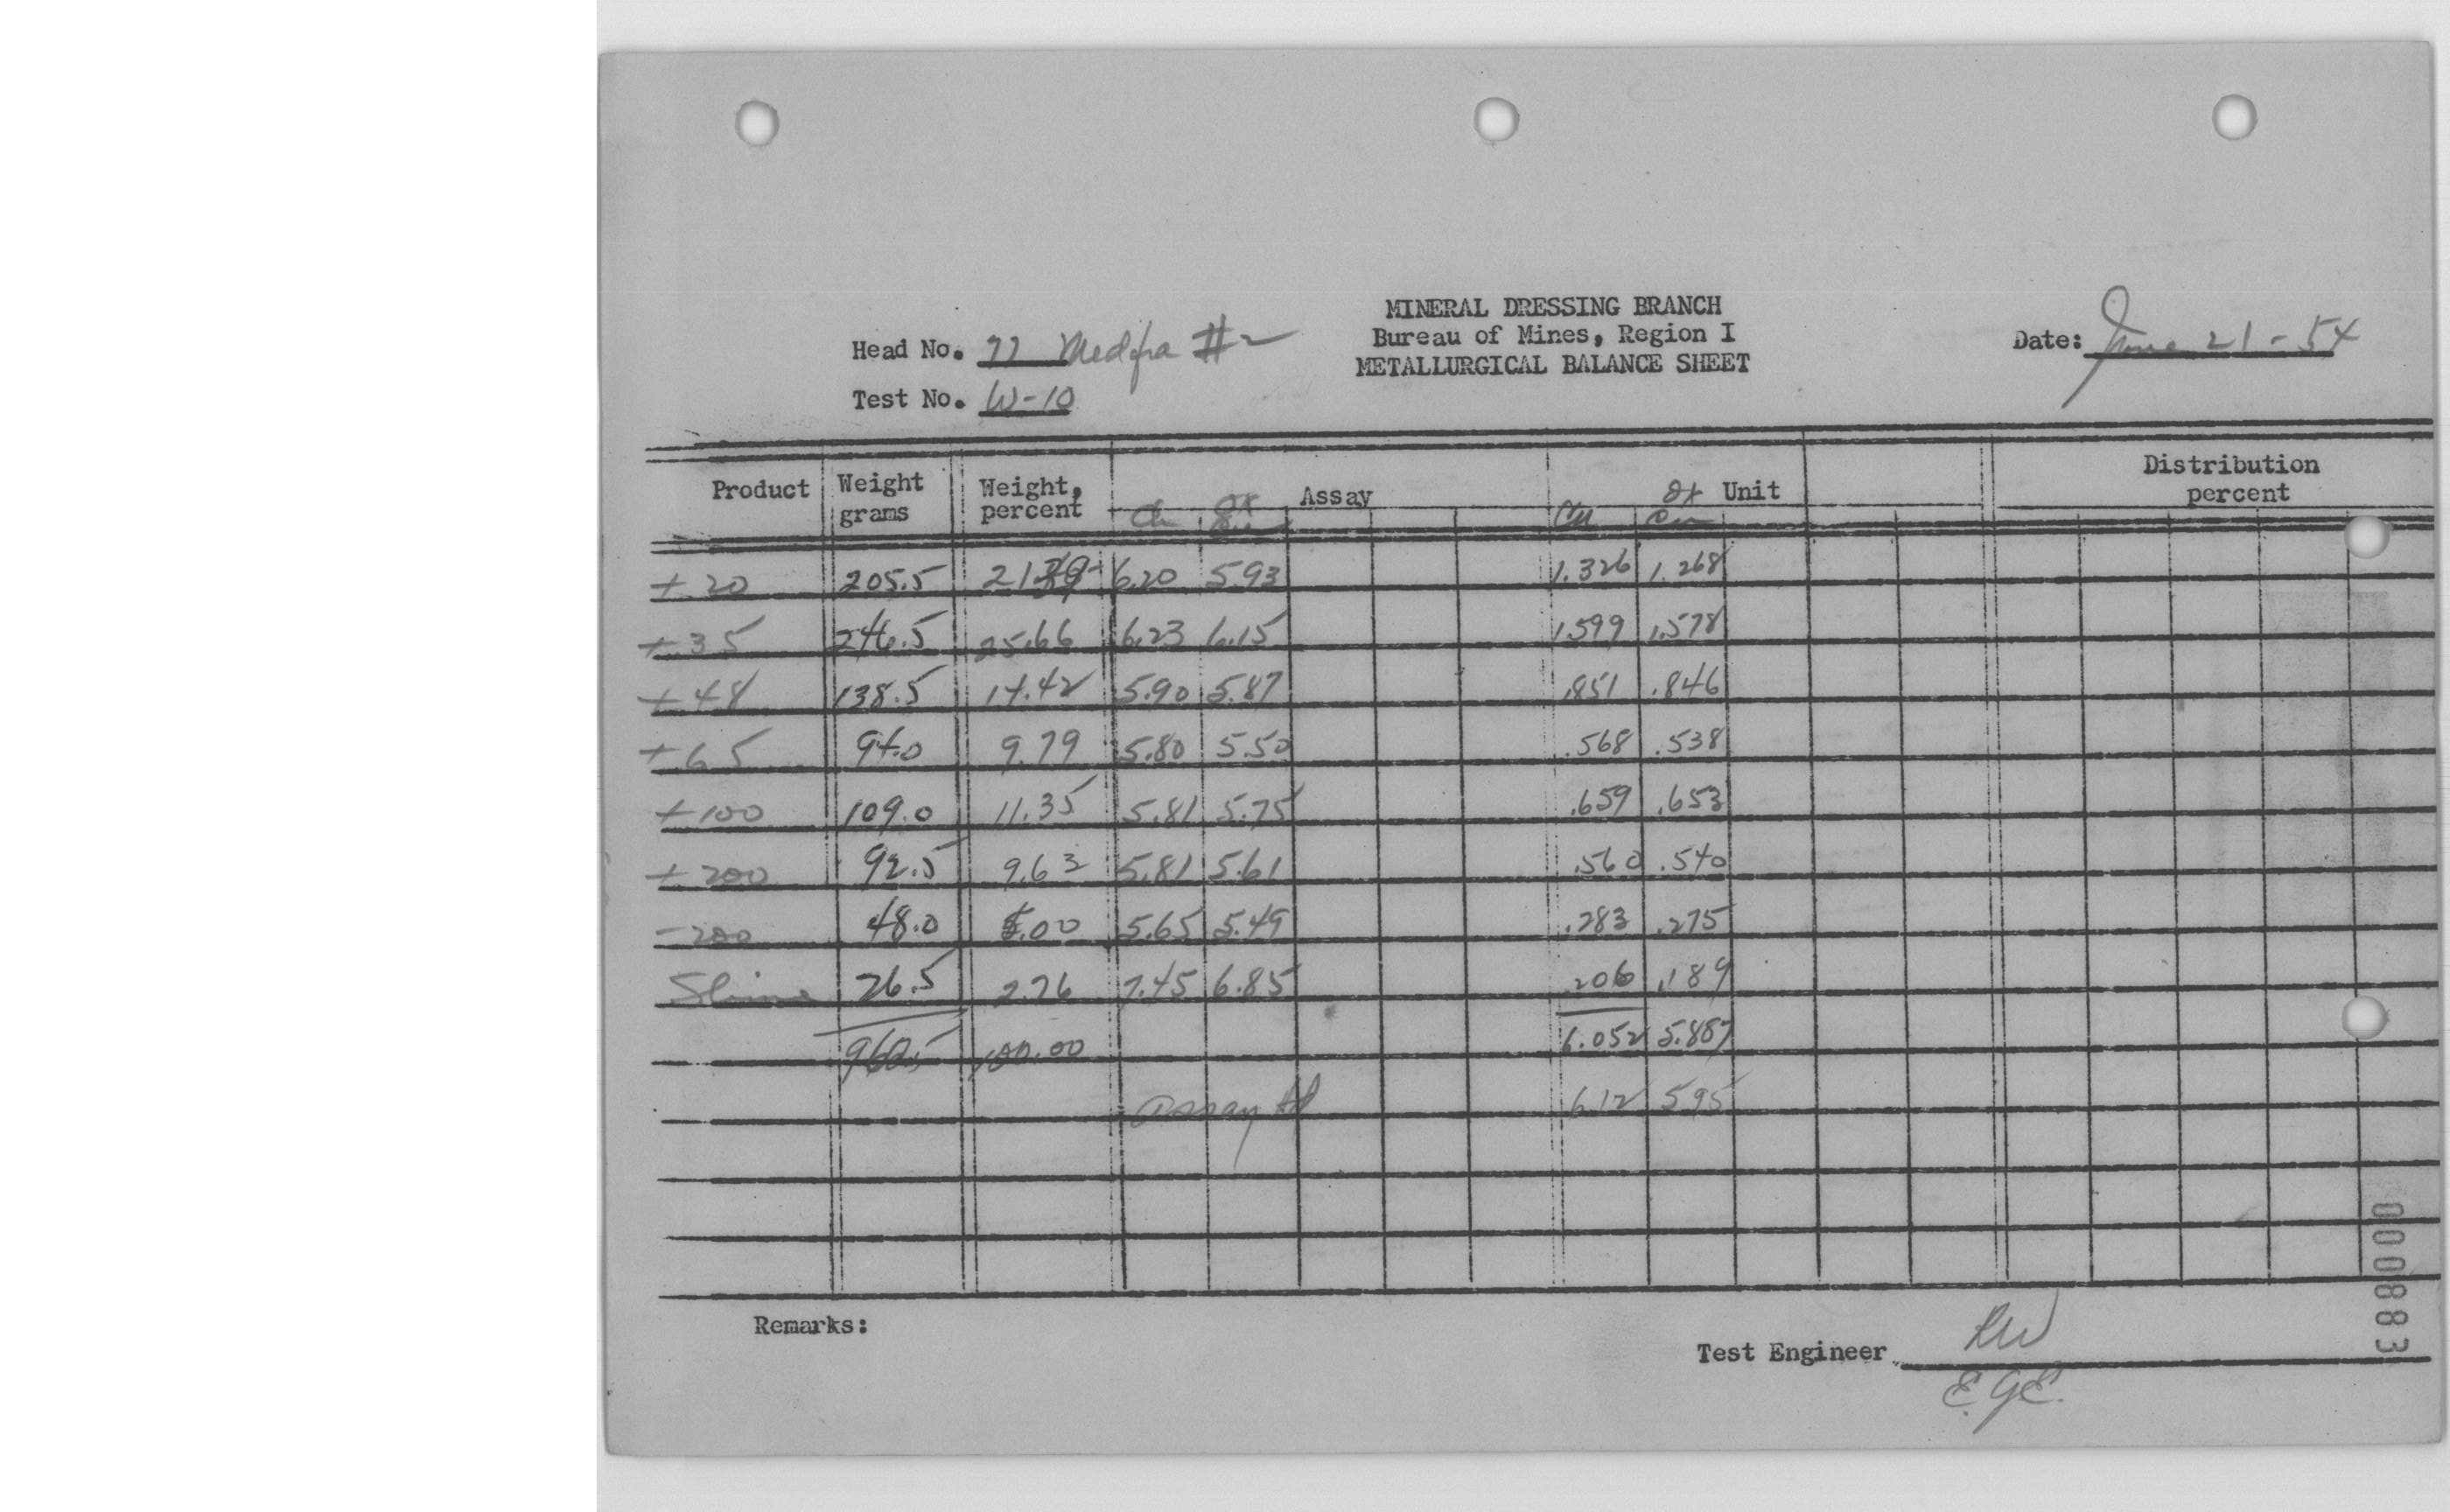 MINERAL DRESSING BRANCH
Bureau of Mines, Region I
METALLURGICAL BALANCE SHEET
Head No. 77 Medfra #2
Test No. W-10
Date: June 21-54
Product Weight grams Weight, percent Assay Unit Distribution percent
Cu Ox Cu Cu Ox Cu
+20 205.5 21.39 6.20 5.93 1.326 1.268
+35 246.5 25.66 6.23 6.15 1.599 1.578
+48 138.5 14.42 5.90 5.87 .851 .846
+65 94.0 9.79 5.80 5.50 .568 .538
+100 109.0 11.35 5.81 5.75 .659 .653
+200 92.5 9.63 5.81 5.61 .560 .540
-200 48.0 5.00 5.65 5.49 .283 .275
Slime 26.5 2.76 7.45 6.85 .206 .189
960.5 100.00 6.052 5.887
Assay Hd 6.12 5.95
Remarks:
Test Engineer RW
E.G.E.
000883